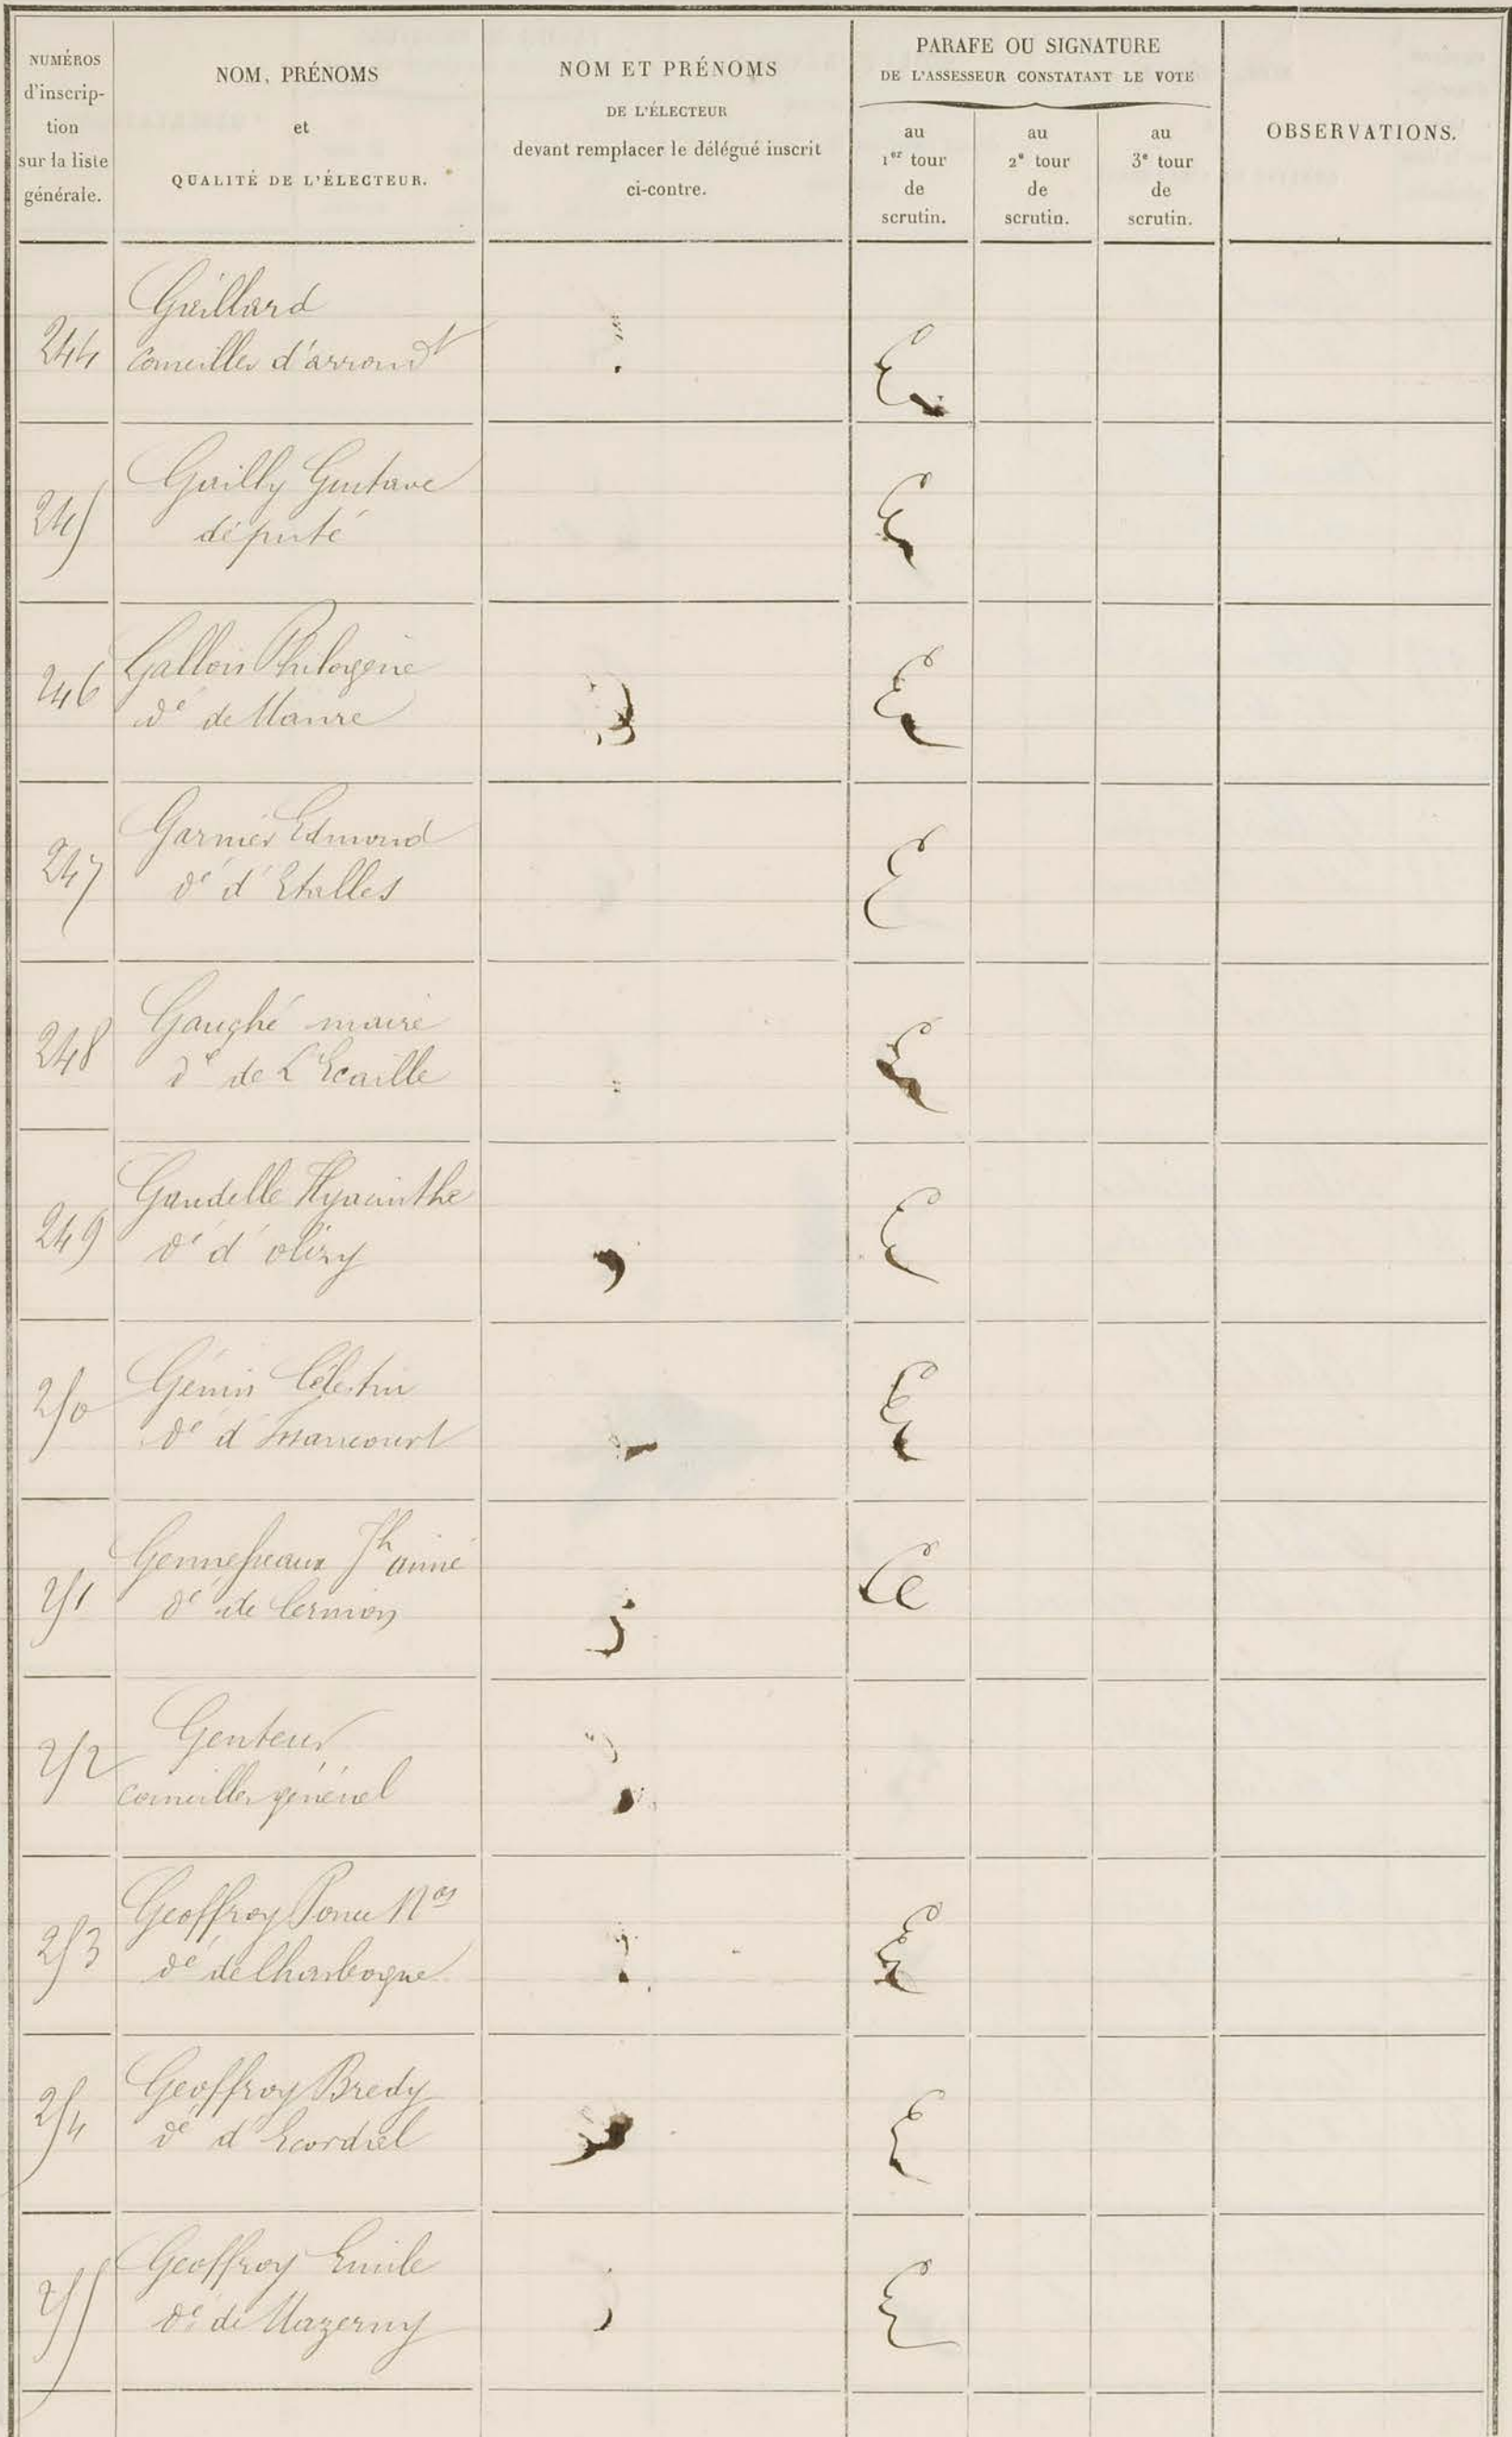 NUMÉROS
d'inscrip-
tion
sur la liste
générale.
NOM, PRÉNOMS
et
QUALITÉ DE L'ÉLECTEUR.
NOM ET PRÉNOMS
DE L'ÉLECTEUR
devant remplacer le délégué inscrit
ci-contre.
PARAFE OU SIGNATURE
DE L'ASSESSEUR CONSTATANT LE VOTE
au
1er tour
de
scrutin.
au
2e tour
de
scrutin.
au
3e tour
de
scrutin.
OBSERVATIONS.
Gaillard
244 conseiller d'arrondt
Gailly Gustave
245 député
Gallois Philogène
246 dé de Manre
Garnier Edmond
247 dé d'Etalles
Gauché maire
248 dé de L'Ecaille
Gaudelle Hyacinthe
249 dé d'olizy
Génin Célestin
250 dé d'Issancourt
Jh aimé
251 dé de Cernion
Genteur
252 conseiller général
Geoffroy Nas
253 dé de Charbogne
Geoffroy Bredy
254 dé d'Ecordal
Geoffroy Emile
255 dé de Mazerny